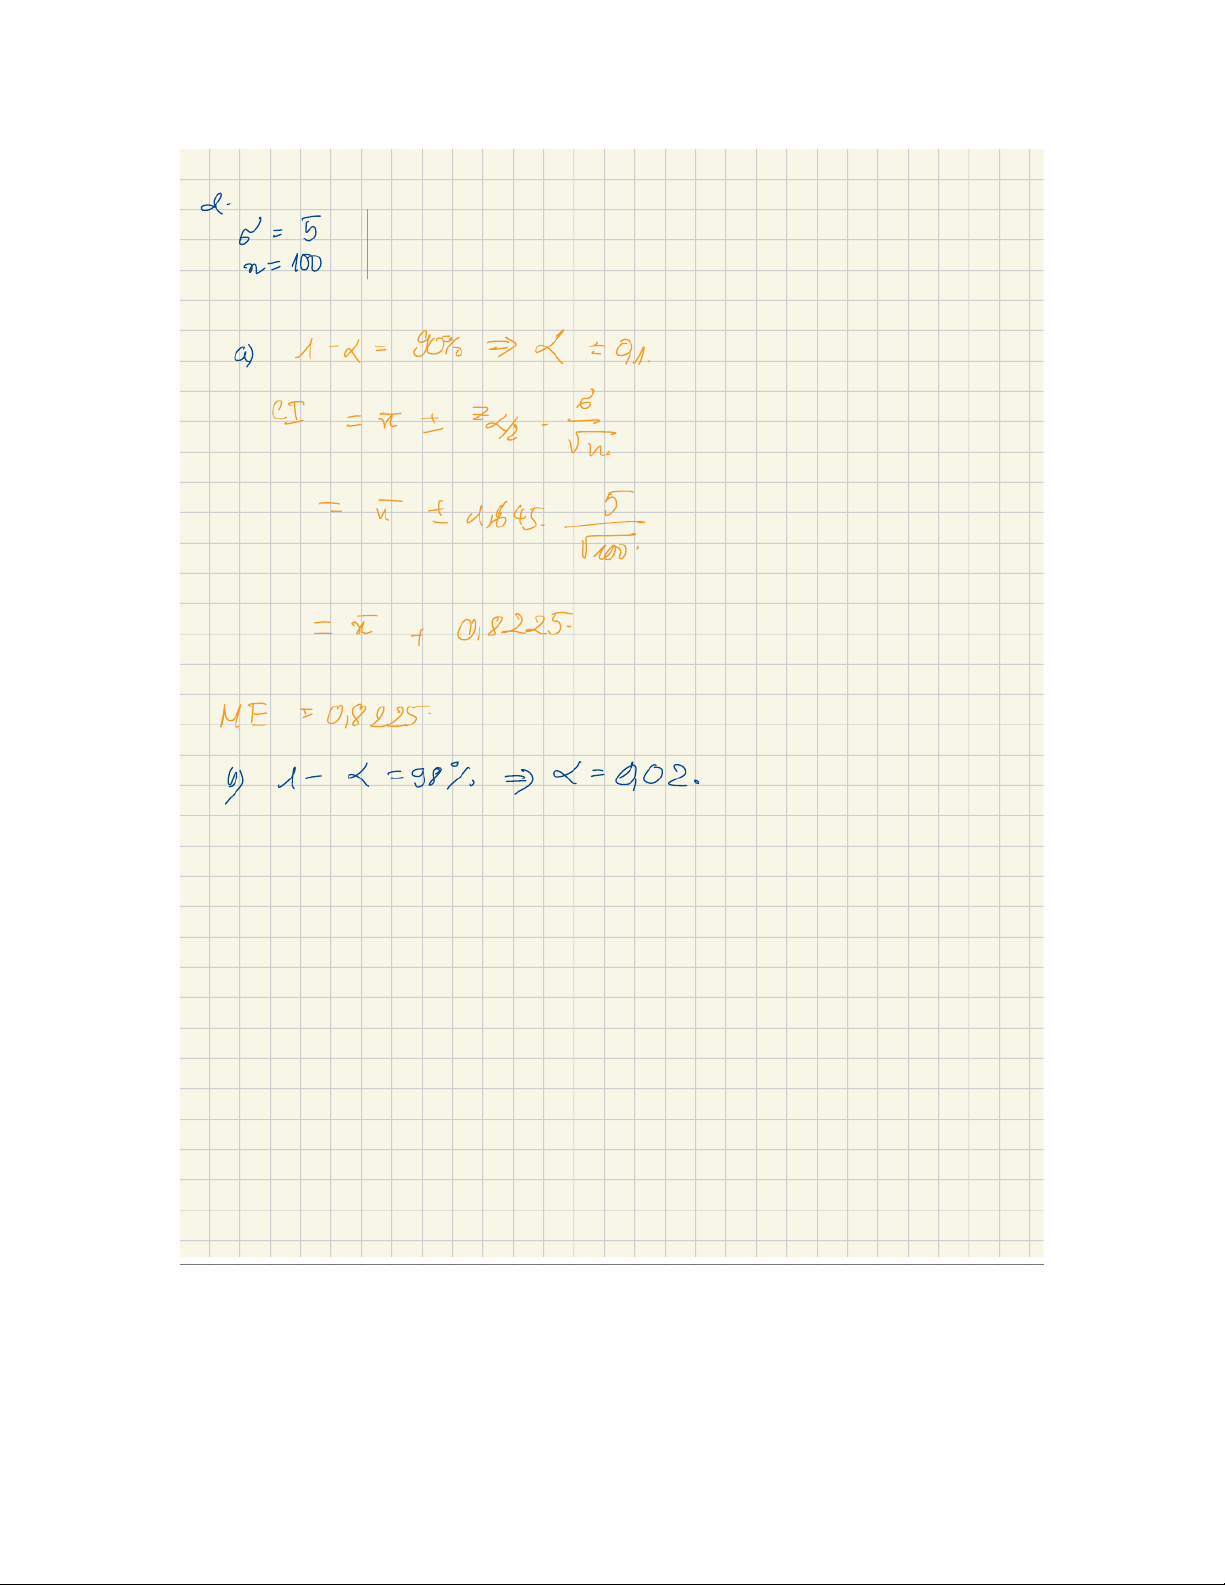 d.
σ = 5
n = 100
a) 1 - α = 90% ⇒ α = 0,1.
CI = x̄ ± z α/2 · σ/√n.
= x̄ ± 1,645. 5/√100.
= x̄ + 0,8225.
ME = 0,8225.
b) 1 - α = 98%. ⇒ α = 0,02.